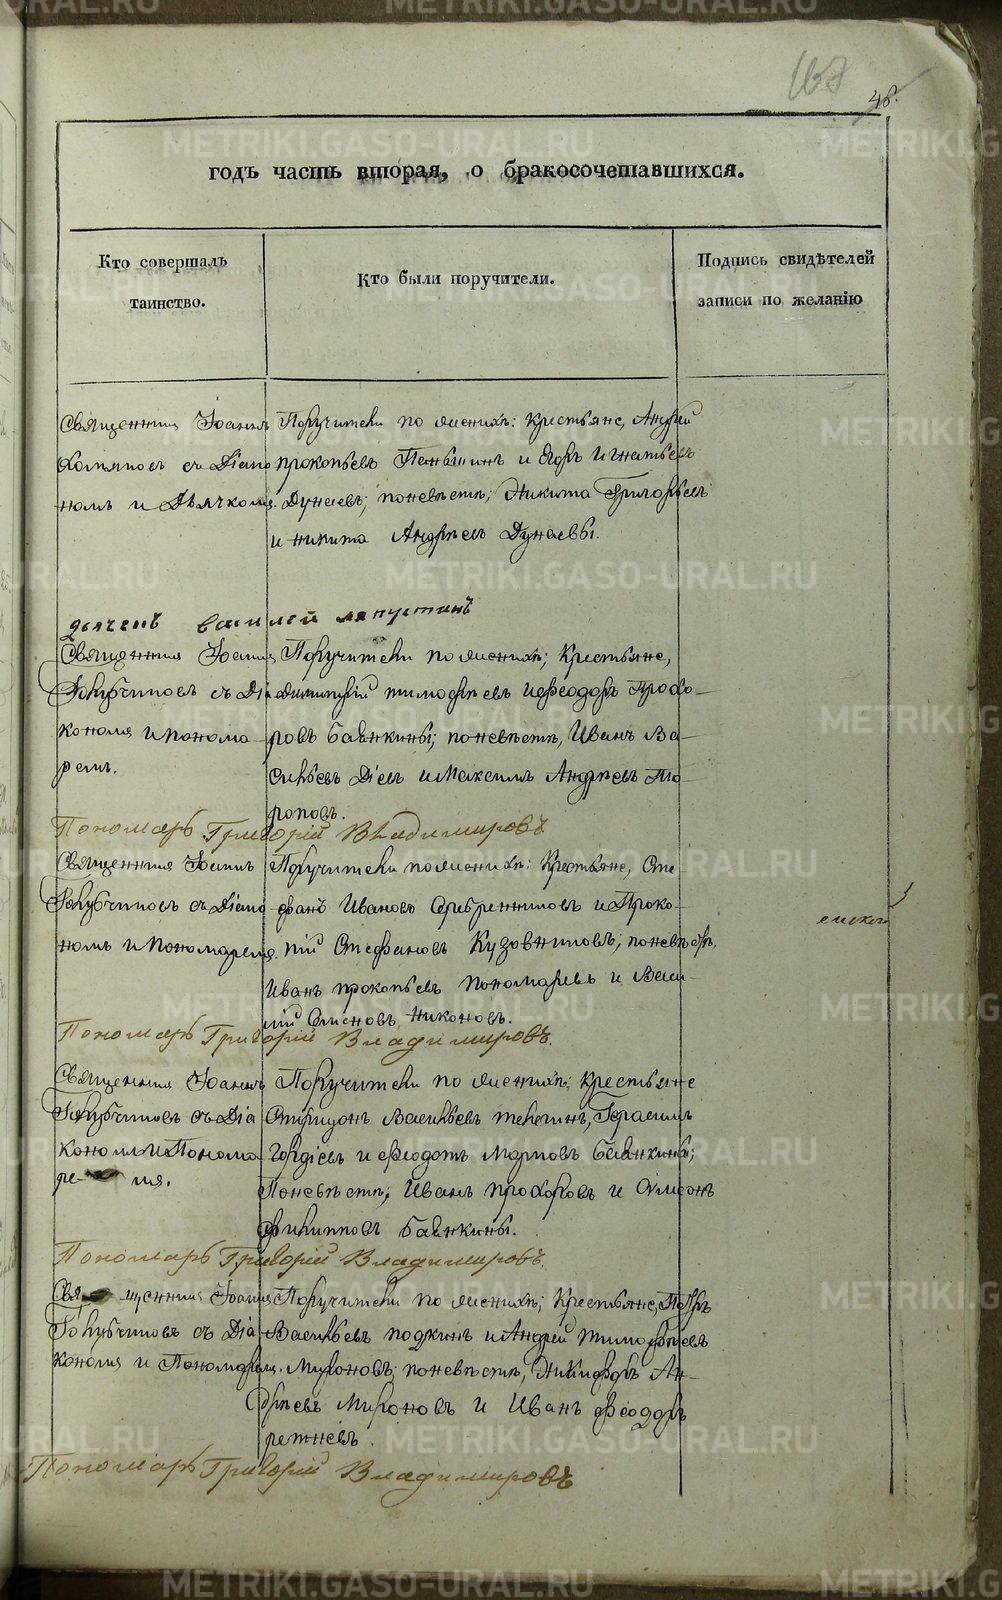 167
48.
годъ часть вторая, о бракосочетавшихся.
Кто совершалъ таинство.
Кто были поручители.
Подпись свидѣтелей записи по желанію
Священникъ Іоаннъ
съ Діако
номъ и Дьячкомъ.
Поручители по женихѣ: крестьяне, Андрей
прокопьевъ Паньшинъ и Егоръ Игнатьевъ
Дунаевъ; по невѣстѣ; Никита Григорьевъ
и никита Андреевъ Дунаевы.
дьячекъ василей лапустинъ
Священникъ Іоаннъ
Голубчиковъ съ Діа
кономъ и понома
ремъ.
Поручители по женихѣ; крестьяне,
Димитрій тимофѣевъ и Феодоръ Прохо-
ровъ Бабкины; по невѣстѣ, Иванъ Ва-
сильевъ Діевъ и Максимъ Андреевъ То-
роповъ.
Пономарь Григорій Владимировъ
Священникъ Іоаннъ
Голубчиковъ съ Діако
номъ и Пономаремъ.
Поручители по женихѣ: крестьяне, Сте
фанъ Ивановъ Серебренниковъ и Проко-
пій Стефановъ Кузовниковъ; по невѣстѣ,
Иванъ прокопьевъ Пономаревъ и Васи-
лій Никоновъ.
Пономарь Григорій Владимировъ.
Священникъ Іоаннъ
Голубчиковъ съ Діа
кономъ и Понома
ре мъ.
Поручители по женихѣ; крестьяне
Спиридонъ Васильевъ телегинъ, Герасимъ
Гордіевъ и феодотъ Марковъ Бабкины;
По невѣстѣ; Иванъ прохоровъ и Симеонъ
филипповъ Бабкины.
Пономарь Григорій Владимировъ.
Священникъ Іоаннъ
Голубчиковъ съ Діа
кономъ и Пономаремъ.
Поручители по женихѣ; Крестьяне, Петръ
Васильевъ и Андрей тимофѣевъ
Мироновъ; по невѣстѣ, Никифоръ Ан-
дреевъ Мироновъ и Иванъ феодоръ
Пономарь Григорій Владимировъ
METRIKI.GASO-URAL.RU